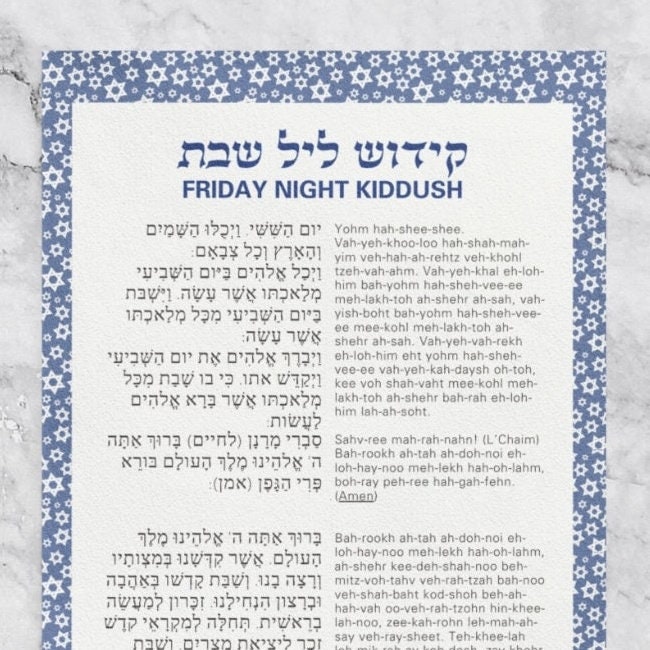 קידוש ליל שבת
FRIDAY NIGHT KIDDUSH
יוֹם הַשִּׁשִּׁי. וַיְכֻלּוּ הַשָּׁמַיִם
וְהָאָרֶץ וְכָל צְבָאָם:
וַיְכַל אֱלֹהִים בַּיּוֹם הַשְּׁבִיעִי
מְלַאכְתּוֹ אֲשֶׁר עָשָׂה. וַיִּשְׁבֹּת
בַּיּוֹם הַשְּׁבִיעִי מִכָּל מְלַאכְתּוֹ
אֲשֶׁר עָשָׂה:
וַיְבָרֶךְ אֱלֹהִים אֶת יוֹם הַשְּׁבִיעִי
וַיְקַדֵּשׁ אֹתוֹ. כִּי בוֹ שָׁבַת מִכָּל
מְלַאכְתּוֹ אֲשֶׁר בָּרָא אֱלֹהִים
לַעֲשׂוֹת:
סַבְרִי מָרָנָן (לחיים) בָּרוּךְ אַתָּה
ה' אֱלֹהֵינוּ מֶלֶךְ הָעוֹלָם בּוֹרֵא
פְּרִי הַגָּפֶן (אמן):
Yohm hah-shee-shee.
Vah-yeh-khoo-loo hah-shah-mah-
yim veh-hah-ah-rehtz veh-khohl
tzeh-vah-ahm. Vah-yeh-khal eh-loh-
him bah-yohm hah-sheh-vee-ee
meh-lakh-toh ah-shehr ah-sah, vah-
yish-boht bah-yohm hah-sheh-vee-
ee mee-kohl meh-lakh-toh ah-
shehr ah-sah. Vah-yeh-vah-rekh
eh-loh-him eht yohm hah-sheh-
vee-ee vah-yeh-kah-daysh oh-toh,
kee voh shah-vaht mee-kohl meh-
lakh-toh ah-shehr bah-rah eh-loh-
him lah-ah-soht.
Sahv-ree mah-rah-nahn! (L'Chaim)
Bah-rookh ah-tah ah-doh-noi eh-
loh-hay-noo meh-lekh hah-oh-lahm,
boh-ray peh-ree hah-gah-fehn.
(Amen)
בָּרוּךְ אַתָּה ה' אֱלֹהֵינוּ מֶלֶךְ
הָעוֹלָם. אֲשֶׁר קִדְּשָׁנוּ בְּמִצְוֹתָיו
וְרָצָה בָנוּ. וְשַׁבַּת קָדְשׁוֹ בְּאַהֲבָה
וּבְרָצוֹן הִנְחִילָנוּ. זִכָּרוֹן לְמַעֲשֵׂה
בְרֵאשִׁית. תְּחִלָּה לְמִקְרָאֵי קֹדֶשׁ
זֵכֶר לִיצִיאַת מִצְרַיִם. וְשַׁבַּת
Bah-rookh ah-tah ah-doh-noi eh-
loh-hay-noo meh-lekh hah-oh-lahm,
ah-shehr kee-deh-shah-noo beh-
mitz-voh-tahv veh-rah-tzah bah-noo
veh-shah-baht kod-shoh beh-ah-
hah-vah oo-veh-rah-tzohn hin-khee-
lah-noo, zee-kah-rohn leh-mah-ah-
say veh-ray-sheet. Teh-khee-lah